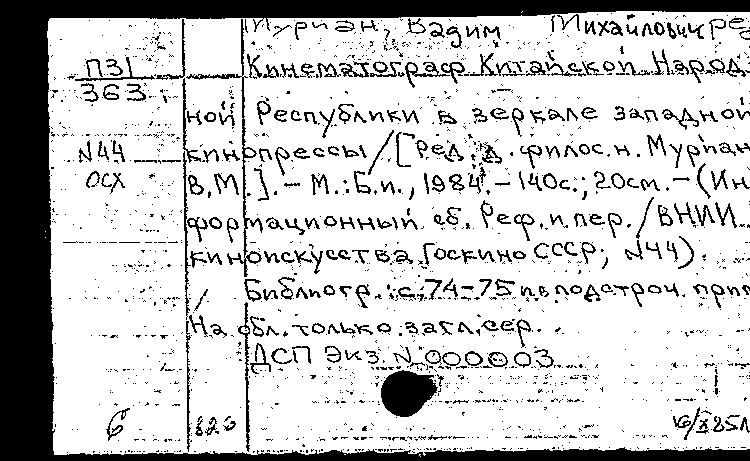 Муриан, Вадим Михайлович ред
П31 Кинематограф Китайской Народ
363
ной Республики в зеркале западной
N44 кинопрессы/[Ред. д. филос. н. Муриан
ОСХ В.М.]. – М.: Б.и., 1984. – 140с.; 20см. – (Ин
формационный сб. Реф. и пер. / ВНИИ
киноискусства Госкино СССР; N44).
Библиогр.: с. 74-75 и в подстроч. прим
На обл. только загл. сер.
ДСП Экз. N 000003
6